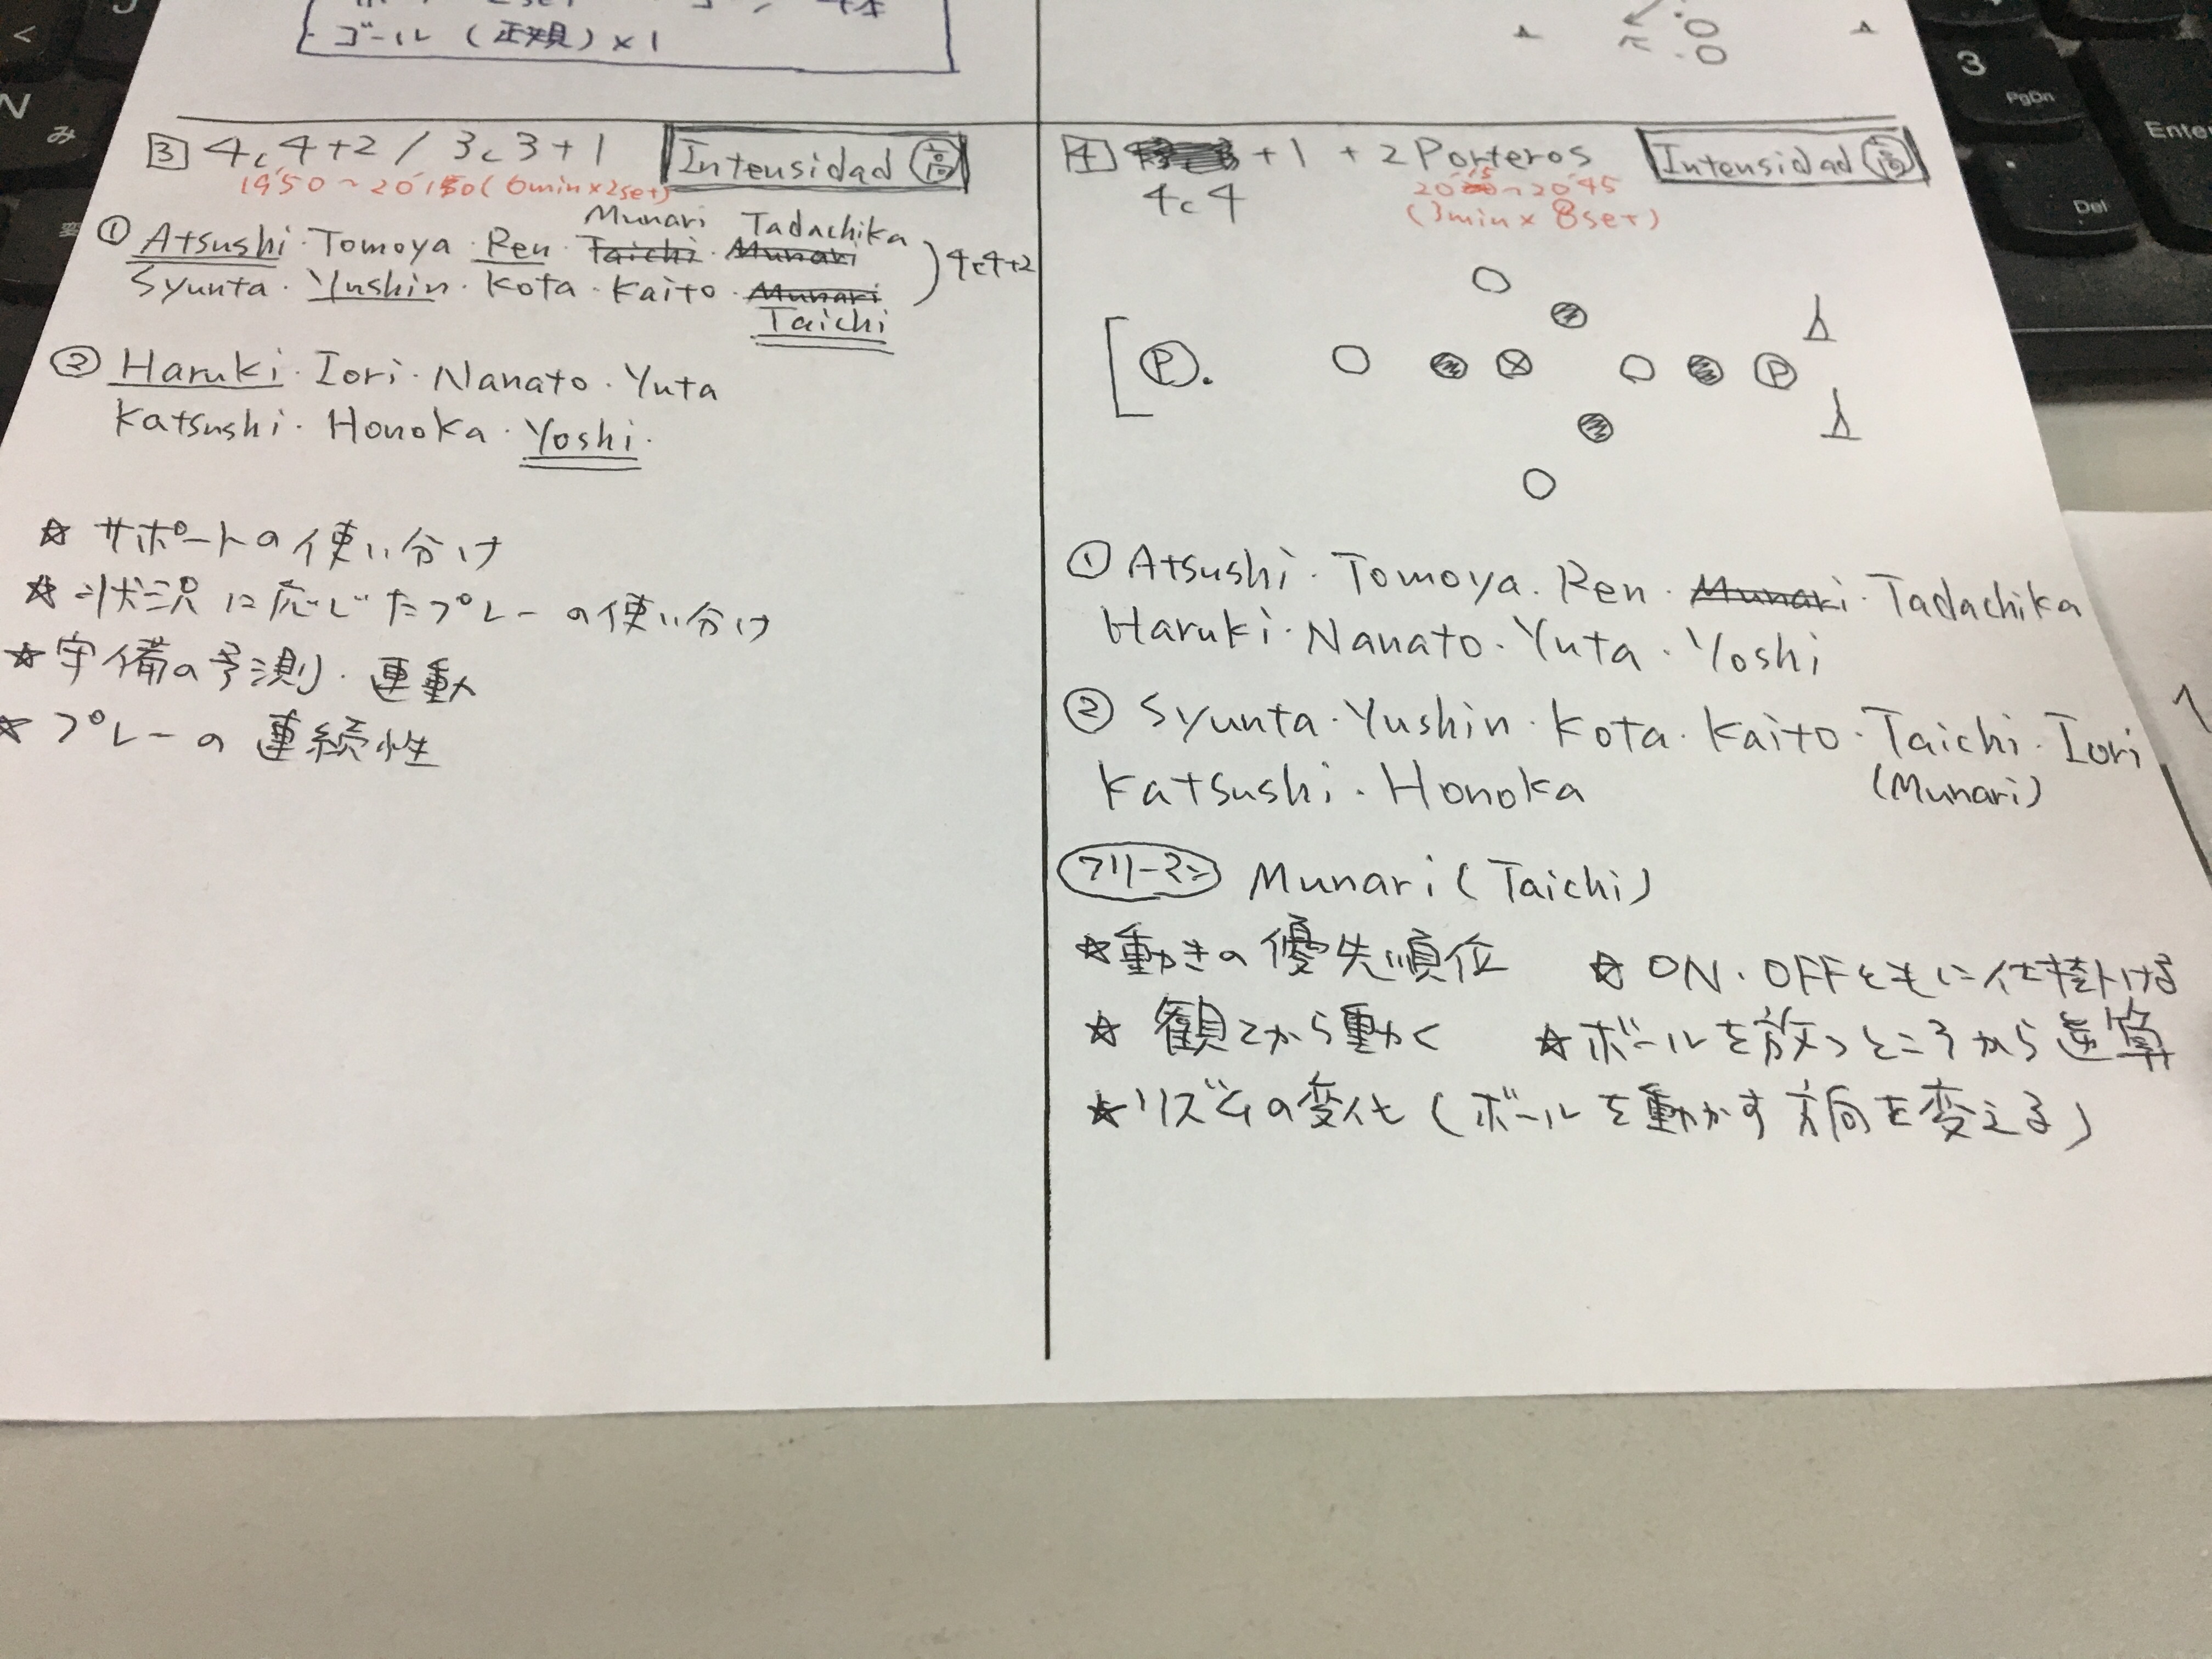 ゴール (正規)×1
3 4c4+2 / 3c3+1 Intensidad 高
(6min×2set)
Munari Tadachika
① Atsushi・Tomoya・Ren・Taichi・Munari
Syunta・Yushin・Kota・Kaito・Munari
4c4+2
Taichi
② Haruki・Iori・Nanato・Yuta
Katsushi・Honoka・Yoshi.
☆ サポートの使い分け
☆ 状況に応じたプレーの使い分け
☆ 守備の予測・連動
☆ プレーの連続性
4 +1 +2Porteros Intensidad 高
4c4
20'15~20'45
(3min×8set)
P P
① Atsushi・Tomoya・Ren・Munari・Tadachika
Haruki・Nanato・Yuta・Yoshi
② Syunta・Yushin・Kota・Kaito・Taichi・Iori
(Munari)
Katsushi・Honoka
フリーマン Munari (Taichi)
☆動きの優先順位 ☆ON・OFFともに仕掛ける
☆ 観てから動く ☆ボールを放つところから逆算
☆リズムの変化 (ボールを動かす方向を変える)
<
N み
3
PgDn
Enter
Del